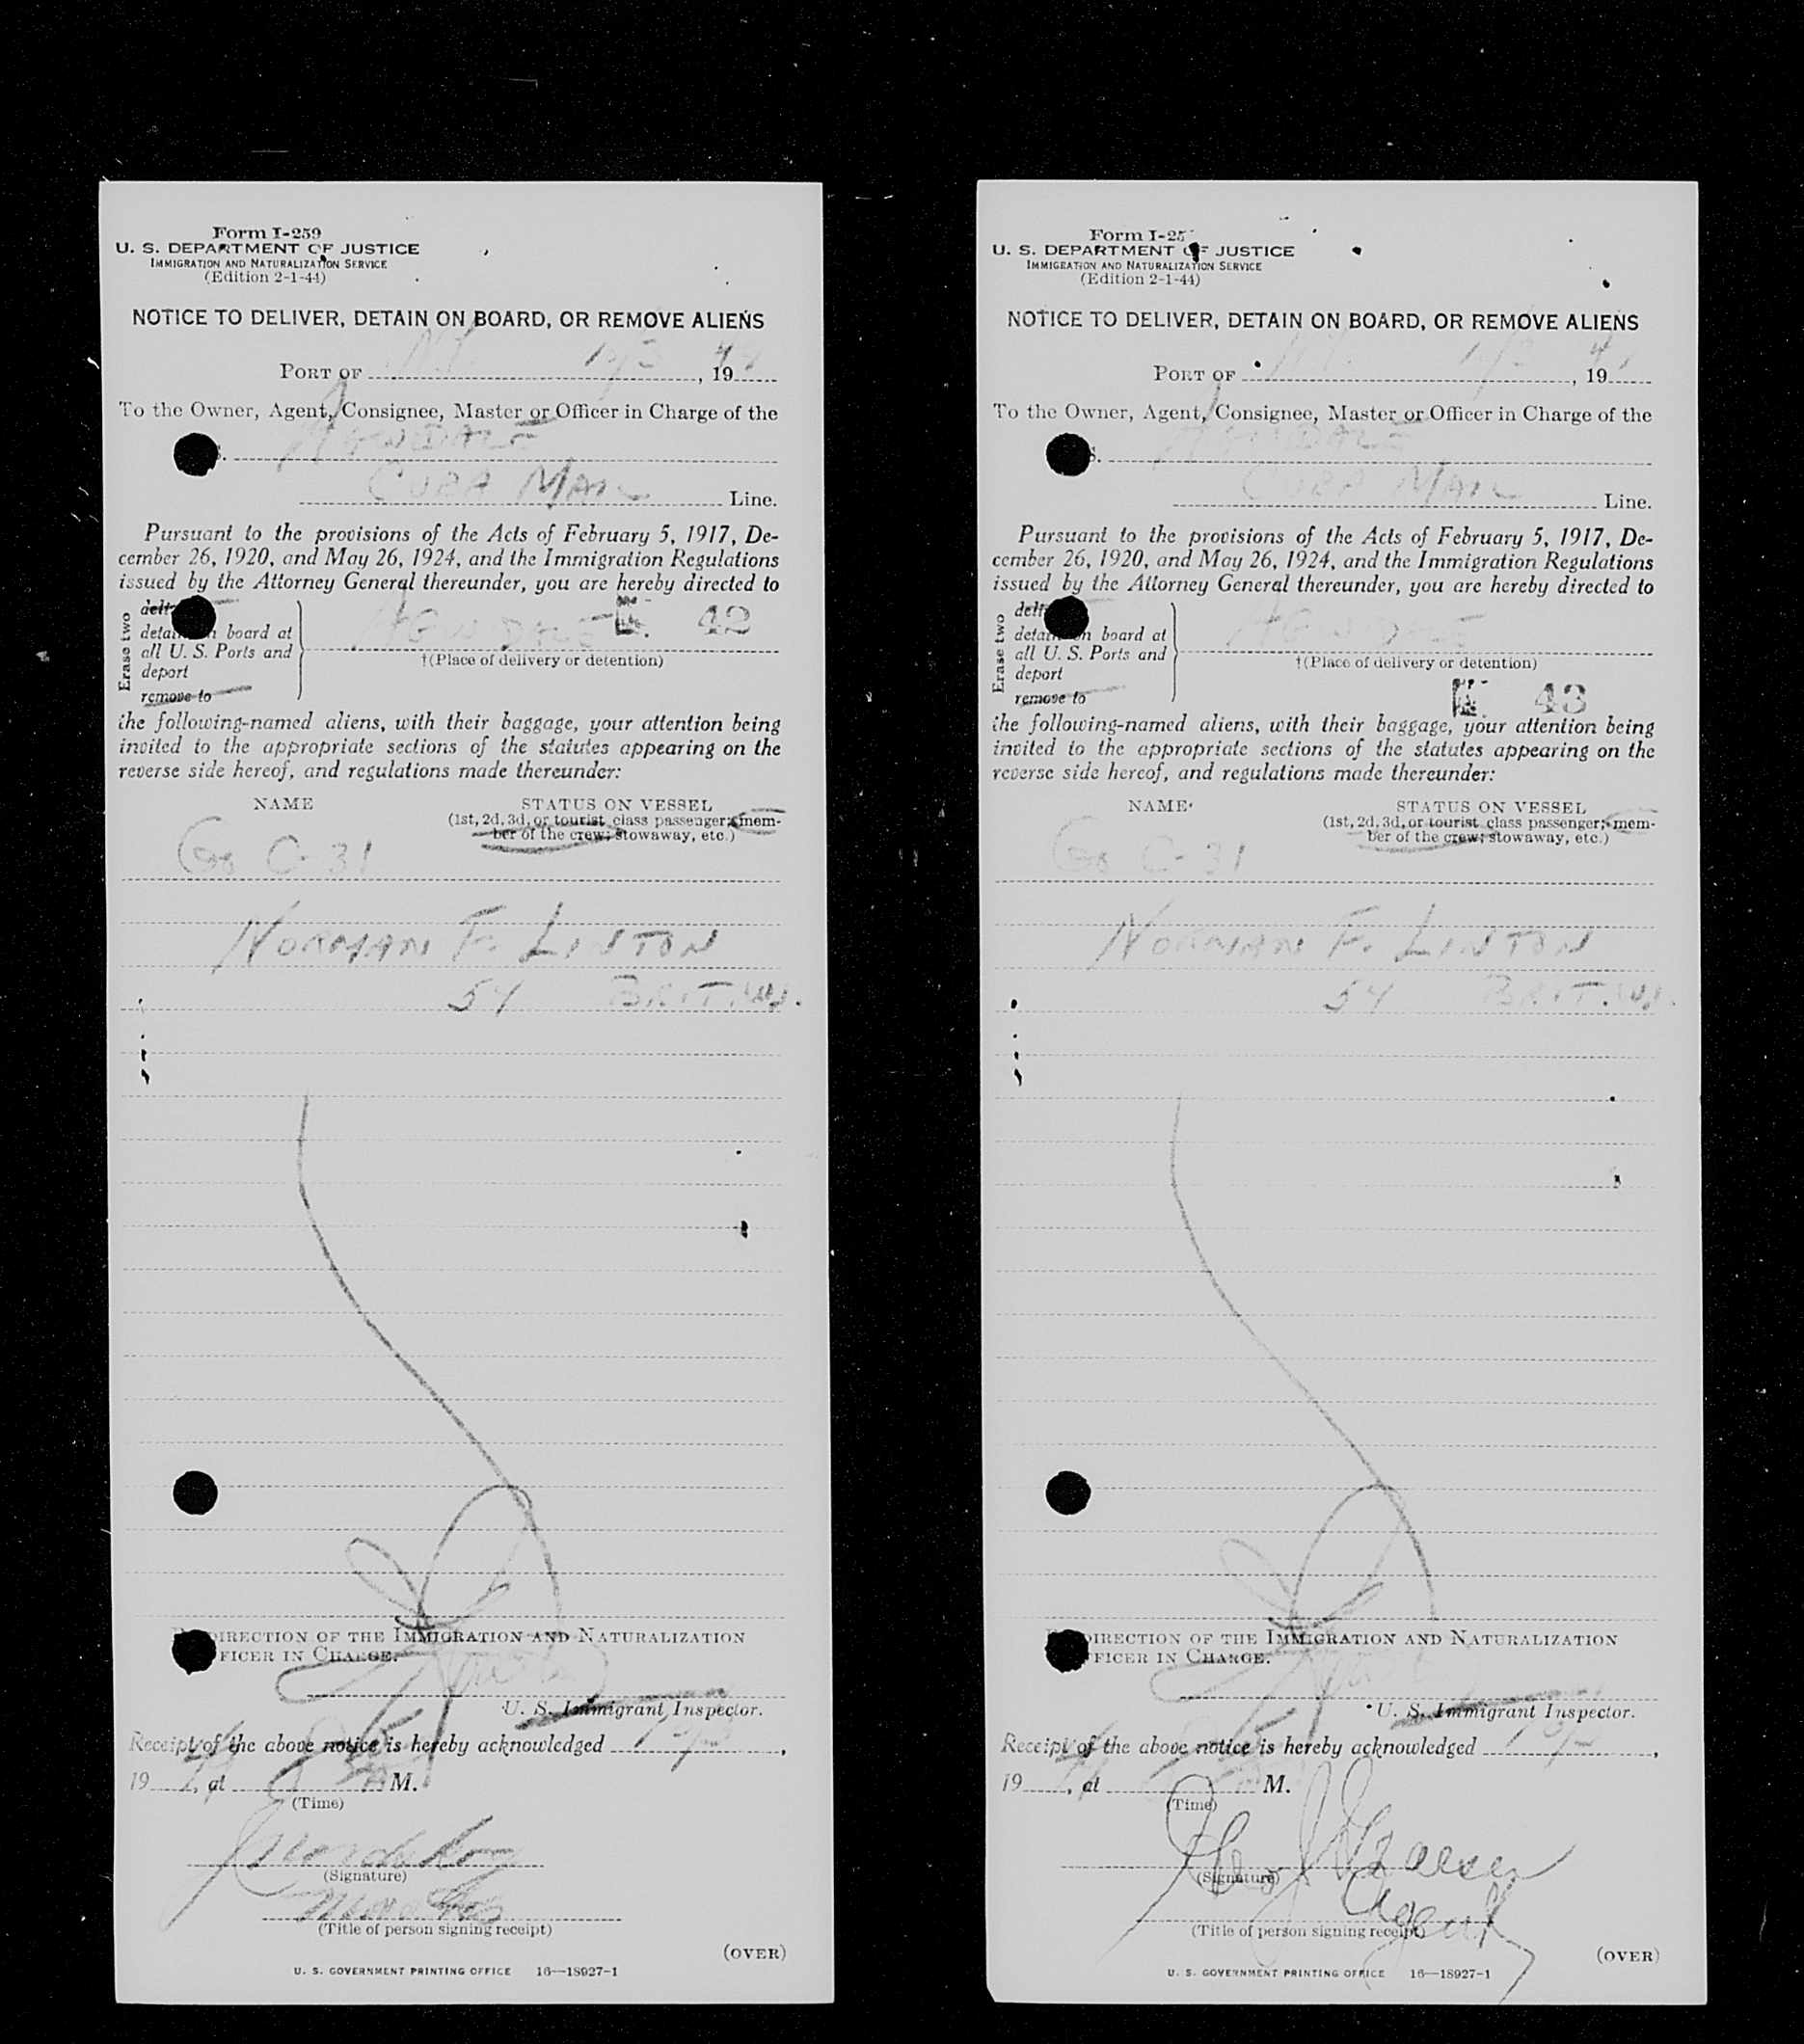 Form I-259
U. S. DEPARTMENT OF JUSTICE
IMMIGRATION AND NATURALIZATION SERVICE
(Edition 2-1-44)
NOTICE TO DELIVER, DETAIN ON BOARD, OR REMOVE ALIENS
PORT OF N.Y. , 19
To the Owner, Agent, Consignee, Master or Officer in Charge of the
S. AGWIDALE
CUBA MAIL Line.
Pursuant to the provisions of the Acts of February 5, 1917, De-
cember 26, 1920, and May 26, 1924, and the Immigration Regulations
issued by the Attorney General thereunder, you are hereby directed to
Erase two
detain on board at
all U. S. Ports and
deport
remove to
AGWIDALE 42
†(Place of delivery or detention)
the following-named aliens, with their baggage, your attention being
invited to the appropriate sections of the statutes appearing on the
reverse side hereof, and regulations made thereunder:
NAME STATUS ON VESSEL
(1st, 2d, 3d, or tourist class passenger; mem-
ber of the crew; stowaway, etc.)
C-31
NORMAN F. LINTON
54 BRIT. W.I.
DIRECTION OF THE IMMIGRATION AND NATURALIZATION
FICER IN CHARGE.
U. S. Immigrant Inspector.
Receipt of the above notice is hereby acknowledged ,
19 , at A M.
(Time)
(Signature)
(Title of person signing receipt)
(OVER)
U. S. GOVERNMENT PRINTING OFFICE 16—18927-1
Form I-25
U. S. DEPARTMENT OF JUSTICE
IMMIGRATION AND NATURALIZATION SERVICE
(Edition 2-1-44)
NOTICE TO DELIVER, DETAIN ON BOARD, OR REMOVE ALIENS
PORT OF N.Y. , 19
To the Owner, Agent, Consignee, Master or Officer in Charge of the
S. AGWIDALE
CUBA MAIL Line.
Pursuant to the provisions of the Acts of February 5, 1917, De-
cember 26, 1920, and May 26, 1924, and the Immigration Regulations
issued by the Attorney General thereunder, you are hereby directed to
Erase two
detain on board at
all U. S. Ports and
deport
remove to
AGWIDALE
†(Place of delivery or detention)
43
the following-named aliens, with their baggage, your attention being
invited to the appropriate sections of the statutes appearing on the
reverse side hereof, and regulations made thereunder:
NAME STATUS ON VESSEL
(1st, 2d, 3d, or tourist class passenger; mem-
ber of the crew; stowaway, etc.)
C-31
NORMAN F. LINTON
54 BRIT. W.I.
DIRECTION OF THE IMMIGRATION AND NATURALIZATION
FFICER IN CHARGE.
U. S. Immigrant Inspector.
Receipt of the above notice is hereby acknowledged ,
19 , at M.
(Time)
(Signature)
Agent
(Title of person signing receipt)
(OVER)
U. S. GOVERNMENT PRINTING OFFICE 16—18927-1